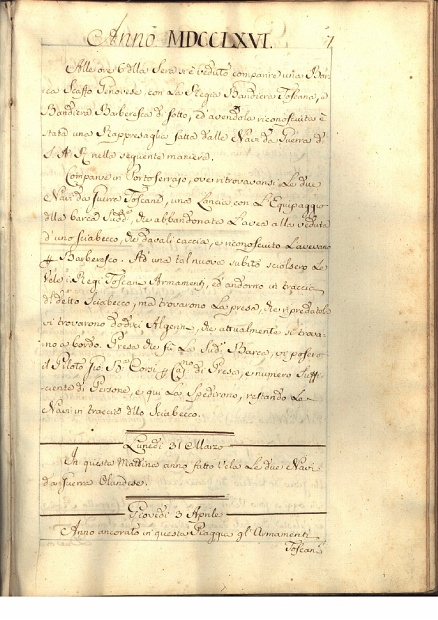 Anno MDCCLXVI.
Alle ore 6 della Sera si è veduto comparire una Bar
ca Scaffo Genovese con La Regia Bandiera Toscana, e
Bandiera Barberesca di sotto, ed avendola riconosciuta è
stata una Rappresaglia fatta dalle Navi da Guerra di
S. A. R. nella seguente maniera.
Comparve in Porto ferrajo, ove ritrovavansi Le due
Navi da guerra Toscane, una Lancia con L'Equipaggio
della barca Sudª, che abbandonata L'avea alla veduta
d'uno sciabecco, che davali caccia, e riconosciuto L'avevano
Barberesco. Ad una tal nuova subito sciolsero Le
Vele i Regi Toscani Armamenti, ed andorno in traccia
di detto Sciabecco, ma trovarono La presa, che ripredatola
vi trovarono dodici Algerini, che attualmente si trova-
no a bordo. Presa che fù La Sudª Barca, vi posero
il Piloto Corsi Capno di Presa, e numero suffi-
ciente di Persone, e qui La Spedirono, restando Le
Navi in traccia dello Sciabecco.
Lunedi 31 Marzo
In questa Mattina anno fatto Vela Le due Navi
da guerra Olandese.
Giovedi 3 Aprile
Anno ancorato in questa Piaggia gl'Armamenti
Toscani